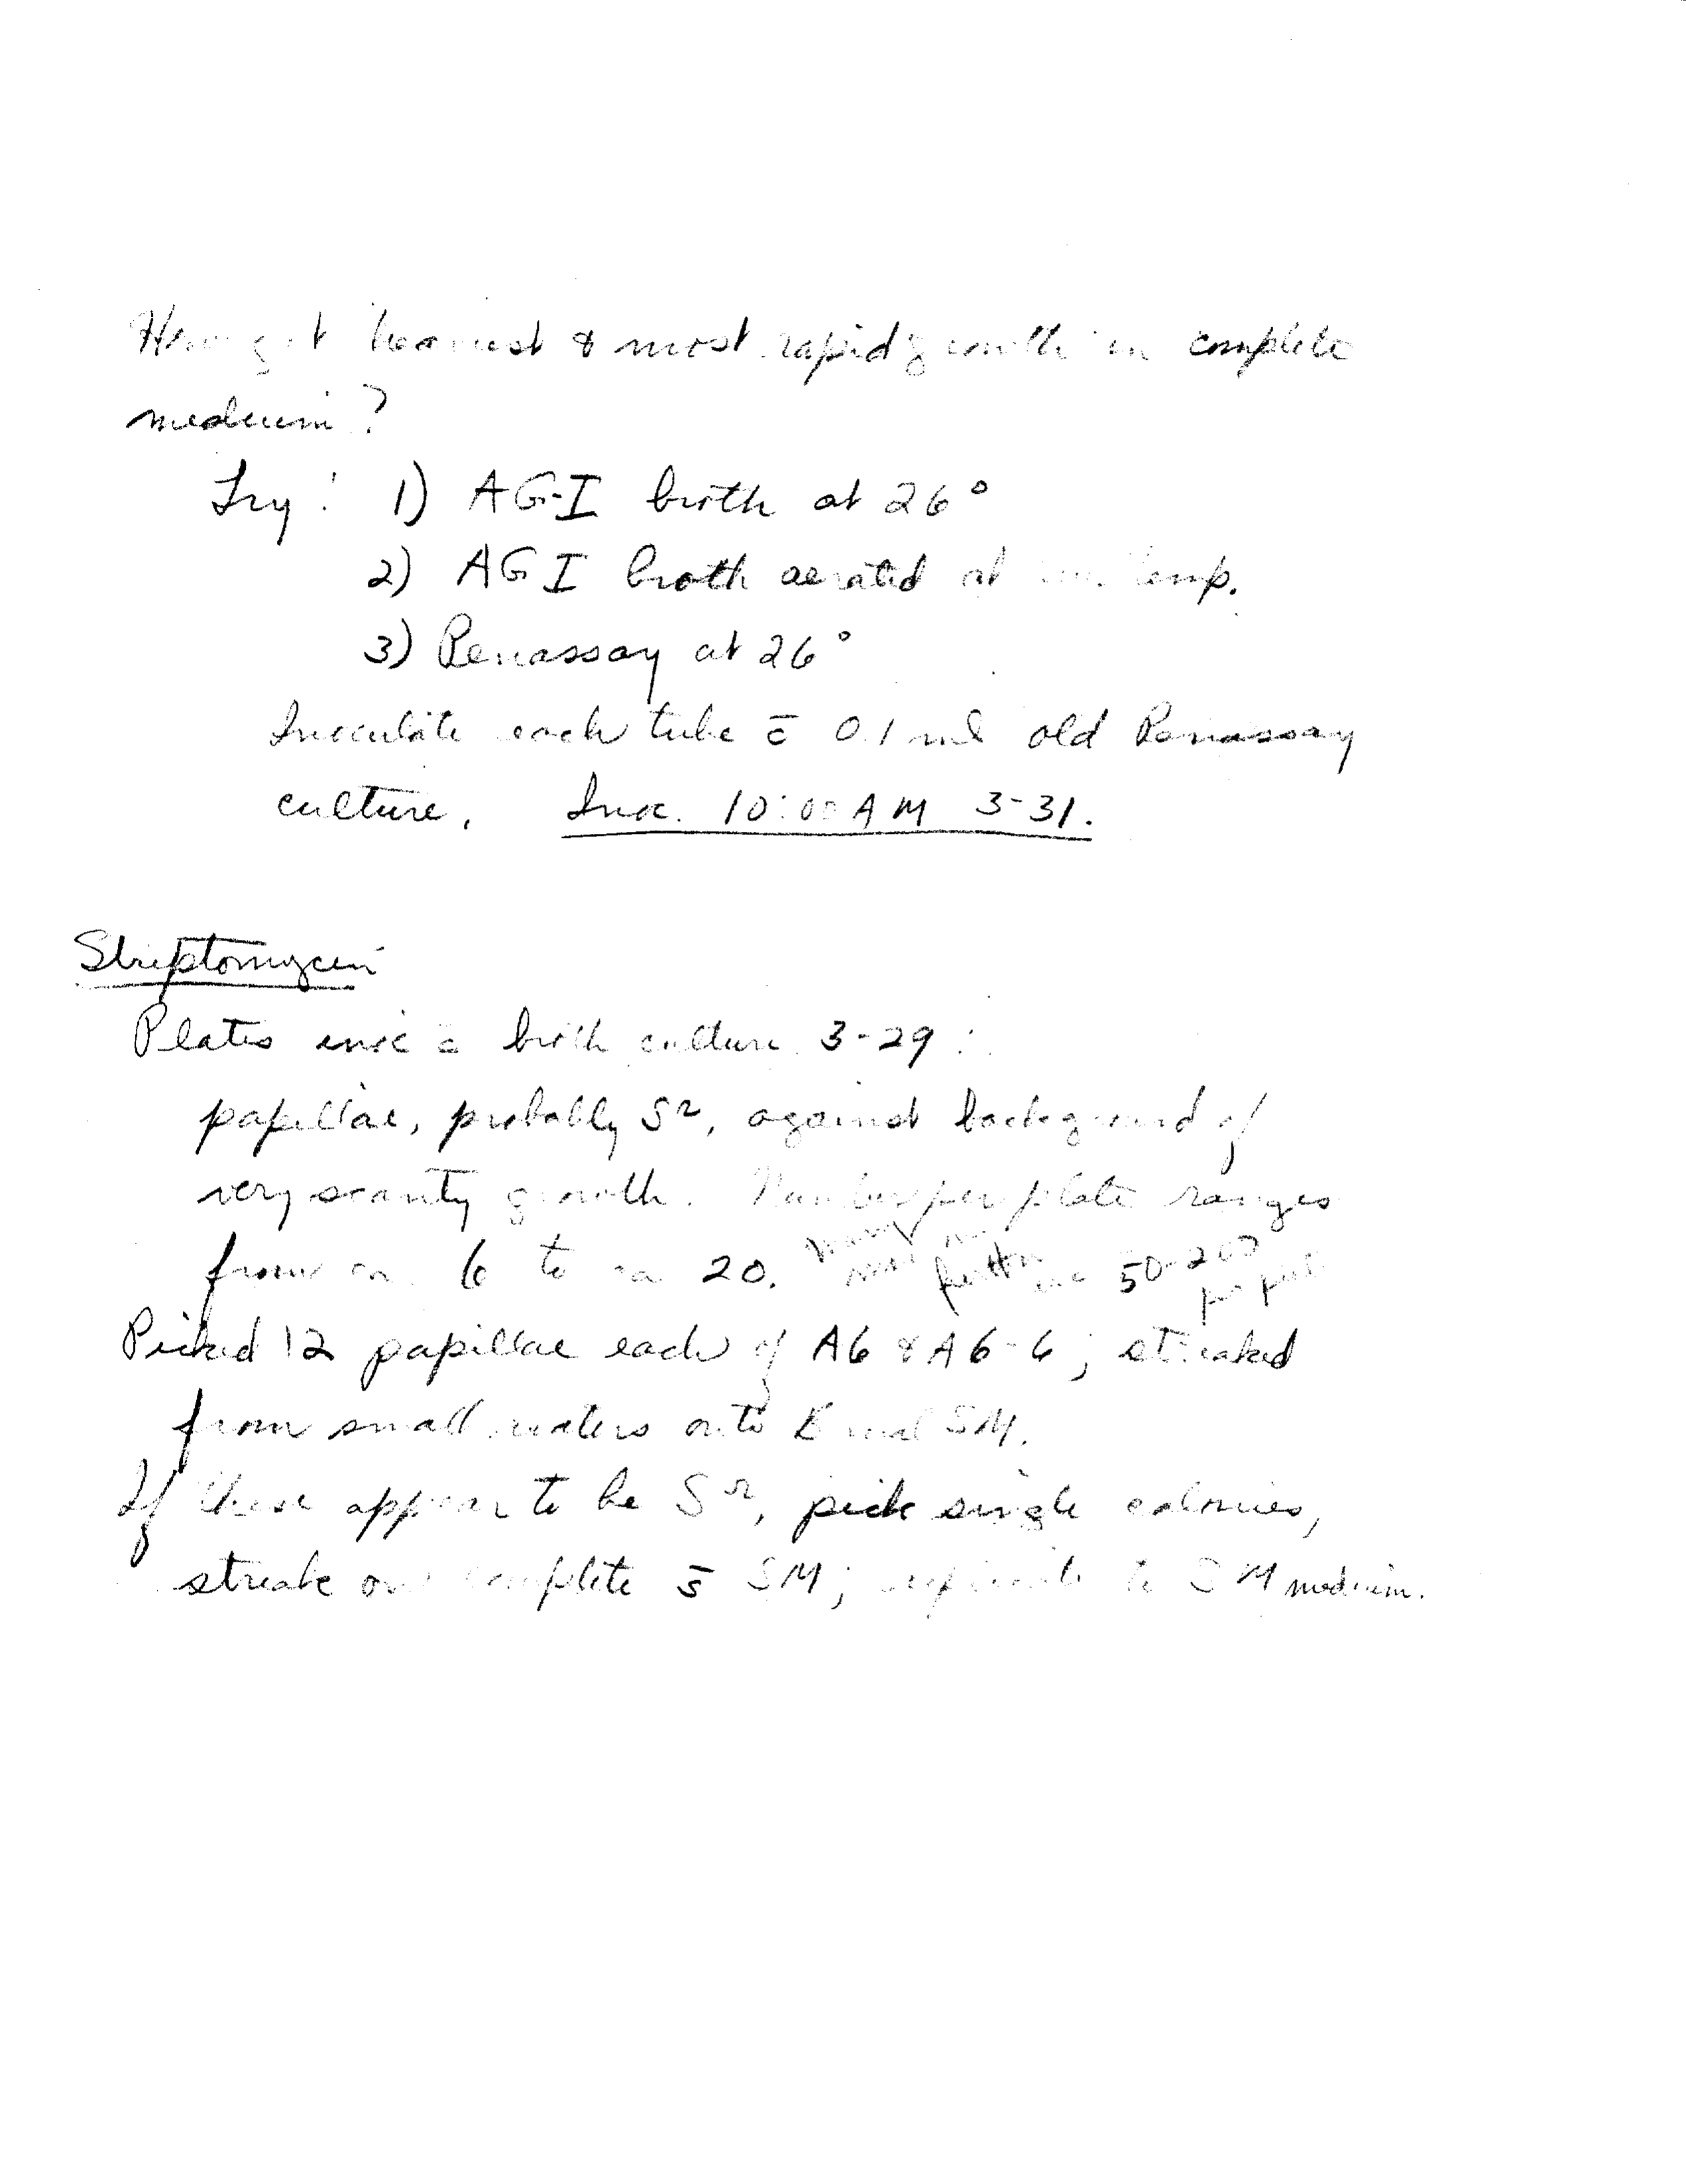 How get heaviest & most rapid growth in complete
medium?
Try: 1) AG-I broth at 26°
2) AGI broth aerated at rm. temp.
3) Penassay at 26°
Inoculate each tube c̄ 0.1 ml old Penassay
culture. Inoc. 10:00 AM 3-31.
Streptomycin
Plates inoc c̄ broth culture 3-29:
papillae, probably Sʳ, against background of
very scanty growth. Number per plate ranges
from ca. 6 to ca 20. 50-200
per plate
Picked 12 papillae each of A6 & A6-6; streaked
from small waters onto SM.
If these appear to be Sʳ, pick single colonies,
streak on complete s̄ SM; to SM medium.